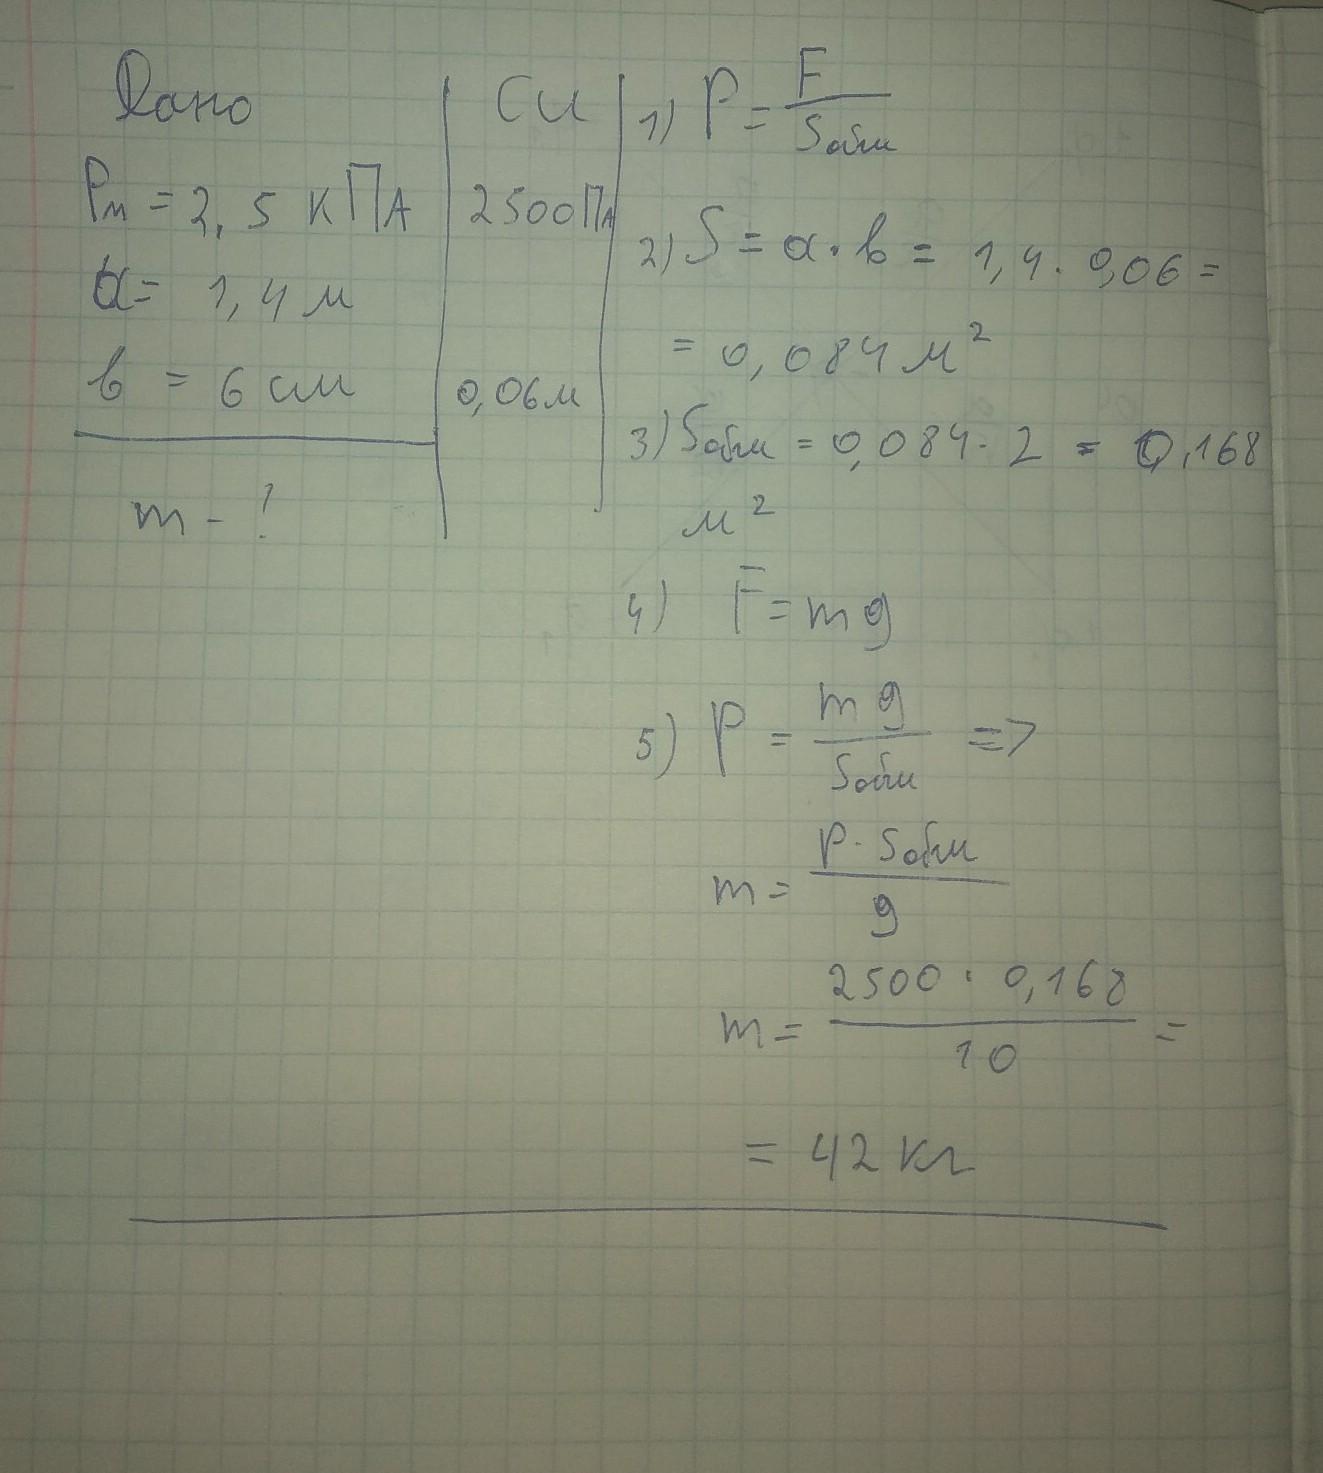 Дано
Pл = 2,5 кПА
a = 1,4 м
в = 6 см
m - ?
Си
2500ПА
0,06м
1) P = F / Sобщ
2) S = a · в = 1,4 · 0,06 =
= 0,084 м²
3) Sобщ = 0,084 · 2 = 0,168
м²
4) F = mg
5) P = mg / Sобщ =>
m = P · Sобщ / g
m = 2500 · 0,168 / 10 =
= 42 кг